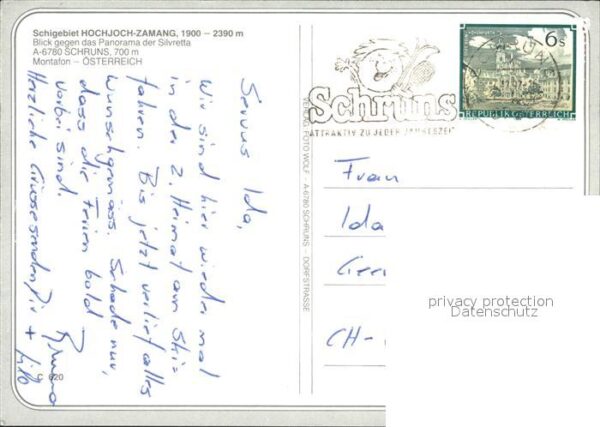 Schigebiet HOCHJOCH-ZAMANG, 1900 – 2390 m
Blick gegen das Panorama der Silvretta
A-6780 SCHRUNS, 700 m
Montafon – ÖSTERREICH
Servus Ida,
Wir sind hier wieder mal
in der 2. Heimat am Ski-
fahren. Bis jetzt verlief alles
wunschgemäss. Schade nur,
dass die Ferien bald
vorbei sind.
Herzliche Grüsse senden Dir
Bruno
+
C 620
VERLAG FOTO WOLF A-6780 SCHRUNS DORFSTRASSE
Schruns
ATTRAKTIV ZU JEDER JAHRESZEIT
6 S
REPUBLIK ÖSTERREICH
Frau
Ida
CH-
privacy protection
Datenschutz